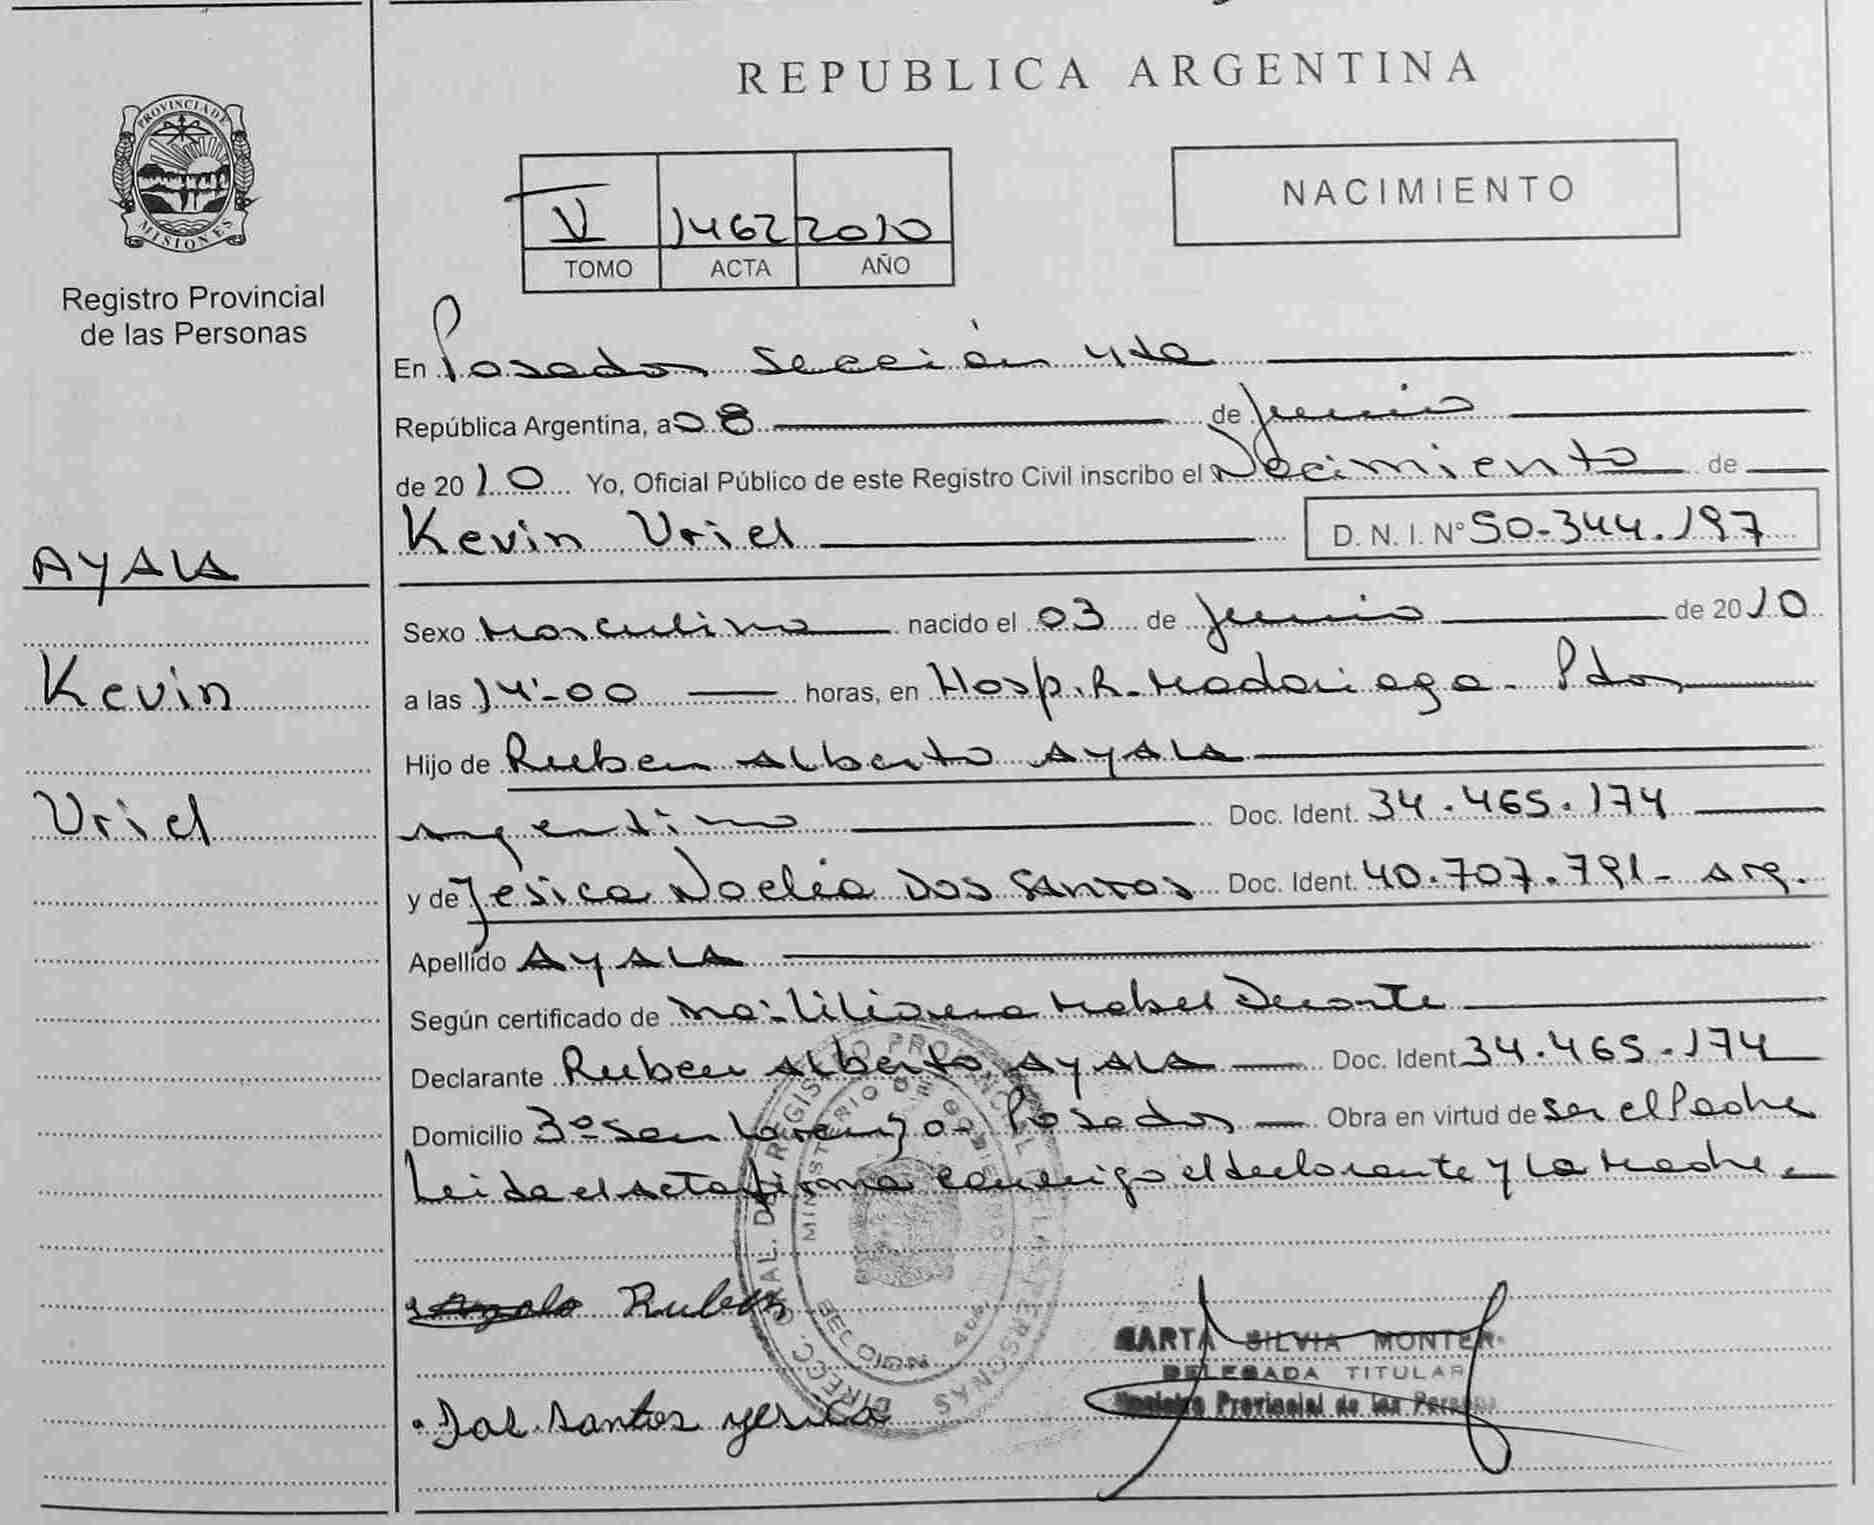 REPUBLICA ARGENTINA
PROVINCIA DE
MISIONES
Registro Provincial
de las Personas
V 1462 2010
TOMO ACTA AÑO
NACIMIENTO
En Posadas Sección 4ta
República Argentina, a 08 de junio
de 2010 Yo, Oficial Público de este Registro Civil inscribo el Nacimiento de
Kevin Uriel D. N. I. Nº 50.344.197
AYALA
Kevin
Uriel
Sexo Masculino nacido el 03 de junio de 2010
a las 14:00 horas, en Hosp. R. Madariaga - Pdas
Hijo de Ruben Alberto AYALA
argentino Doc. Ident. 34.465.174
y de Jesica Noelia DOS SANTOS Doc. Ident. 40.707.791 - Arg.
Apellido AYALA
Según certificado de Liliana Mabel
Declarante Ruben Alberto AYALA Doc. Ident 34.465.174
Domicilio San Lorenzo - Posadas Obra en virtud de ser el Padre
Leida el acta firma conmigo el declarante y la Madre
DIRECC. GRAL. DEL REGISTRO PROVINCIAL DE LAS PERSONAS
MINISTERIO DE GOBIERNO
Ruben
SILVIA MONTER
DELEGADA TITULAR
Registro Provincial de las Personas
Dos Santos Yesica